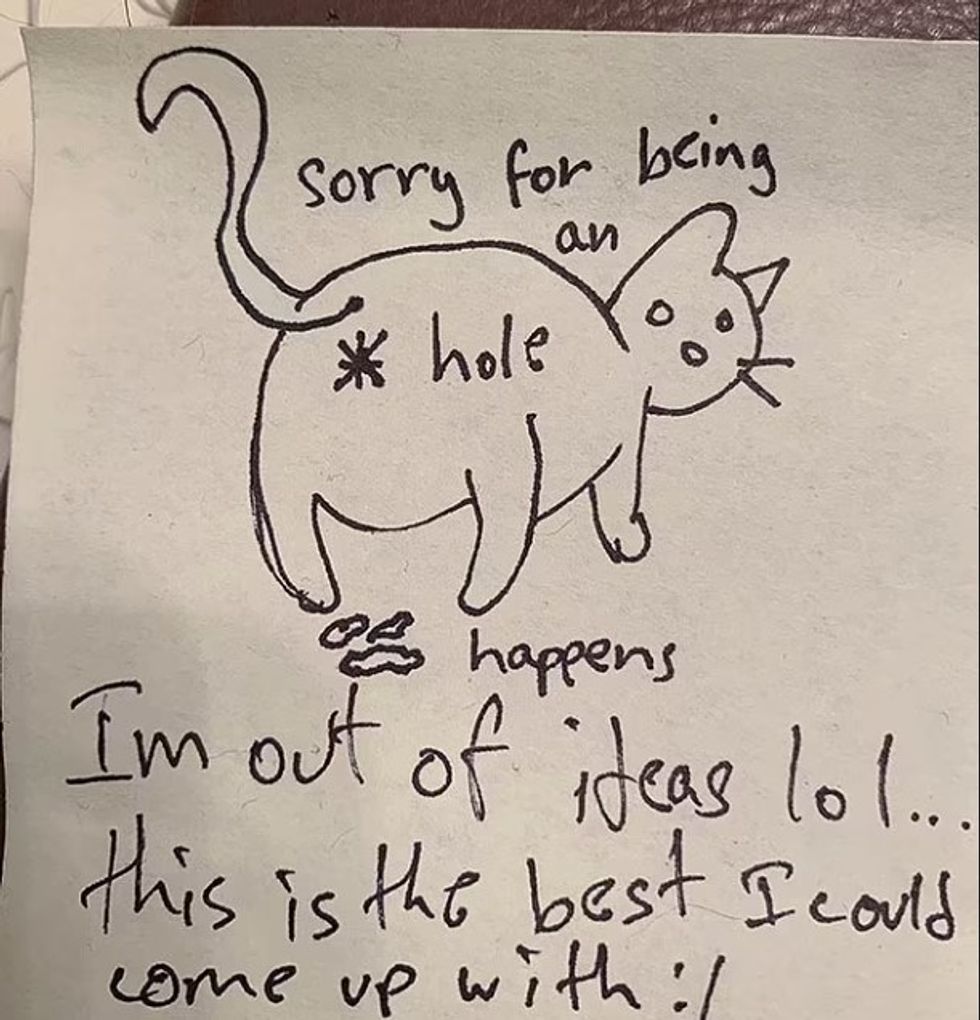 sorry for being
an
* hole
happens
I'm out of ideas lol...
this is the best I could
come up with :/